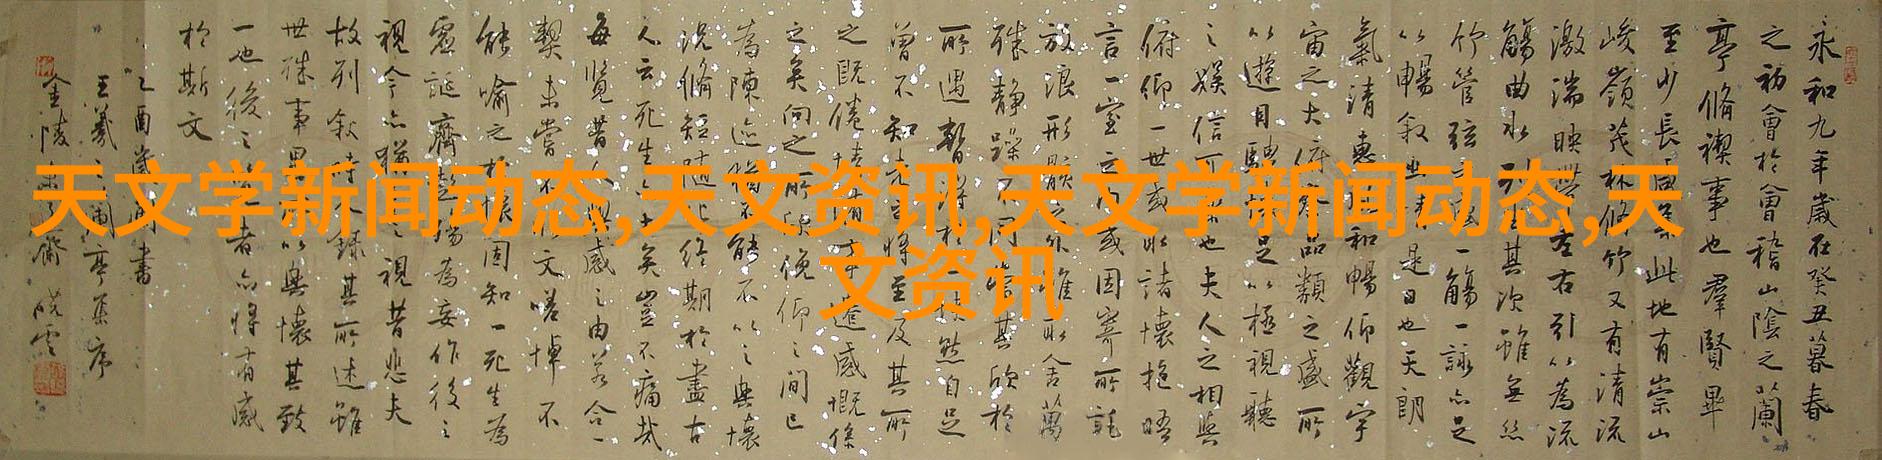 天文学新闻动态,天文资讯,天文学新闻动态,天
文资讯
永和九年歲在癸丑暮春
之初會於會稽山陰之蘭
亭脩禊事也羣賢畢
至少長咸集此地有崇山
峻嶺茂林脩竹又有清流
激湍映帶左右引以為流
觴曲水列坐其次雖無絲
竹管弦之一觴一詠亦足
以暢敘幽是日也天朗
氣清惠和暢仰觀宇
宙之大俯察品類之盛所
以遊目騁足以極視聽
之娛信可樂也夫人之相與
俯仰一世或取諸懷抱晤
言一室之內或因寄所託
放浪形骸之外雖取舍萬
殊靜躁不同當其欣於
所遇暫得於快然自足
曾不知老之將至及其所
之既倦情隨事遷感慨係
之矣向之所欣俛仰之間已
為陳迹猶不能不以之興懷
況脩短隨化終期於盡古
人云死生亦大矣豈不痛哉
每覽昔人興感之由若合一
契未嘗不文嗟悼不
能喻之於懷固知一死生為
虛誕齊彭殤為妄作後之
視今亦猶之視昔悲夫
故列敘時人錄其所述雖
世殊事異以興懷其致
一也後之者亦將有感
於斯文
乙酉書
王羲之蘭亭集序
金陵齋